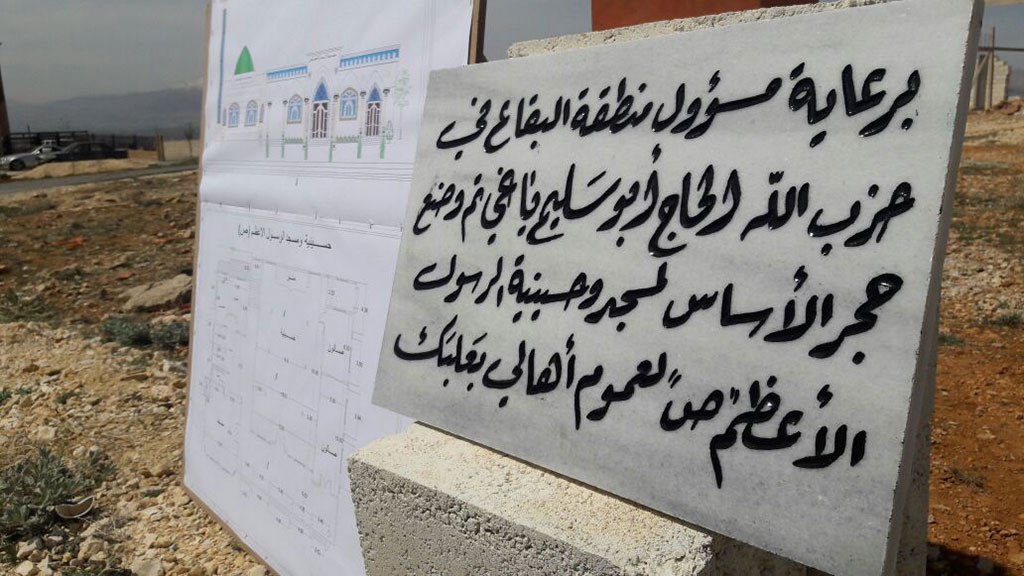 برعاية مسؤول منطقة البقاع في
حزب الله الحاج أبو سليم ياغي تم وضع
حجر الأساس لمسجد وحسينية الرسول
الأعظم "ص" لعموم أهالي بعلبك
حسينية ومسجد الرسول الاعظم (ص)